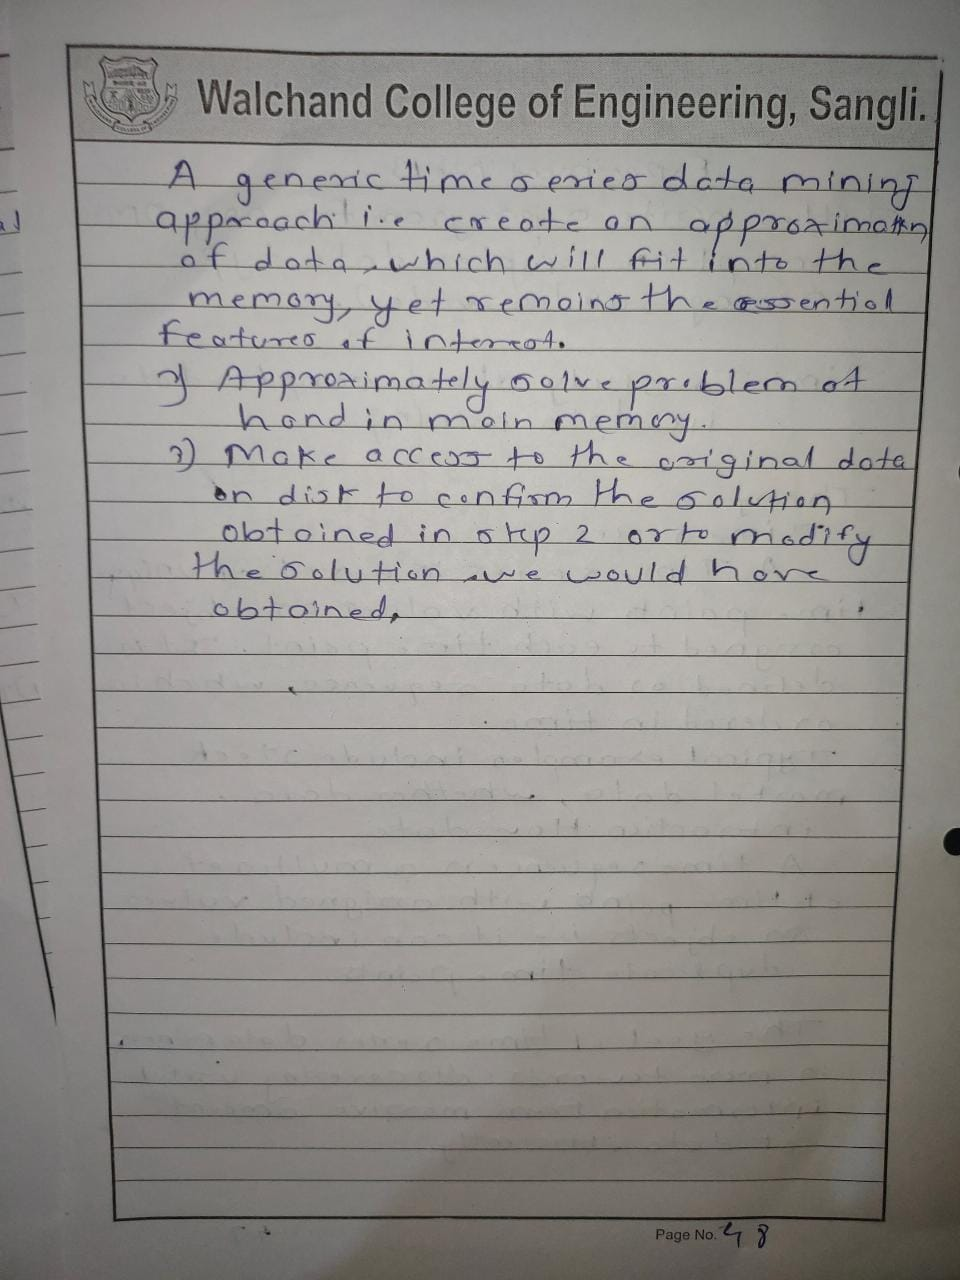 Walchand College of Engineering, Sangli.
A generic time series data mining
approach i.e create an approximation
of data, which will fit into the
memory, yet remains the essential
features of interest.
2) Approximately solve problem at
hand in main memory.
3) Make access to the original data
on disk to confirm the solution
obtained in step 2 or to modify
the solution we would have
obtained.
Page No. 48